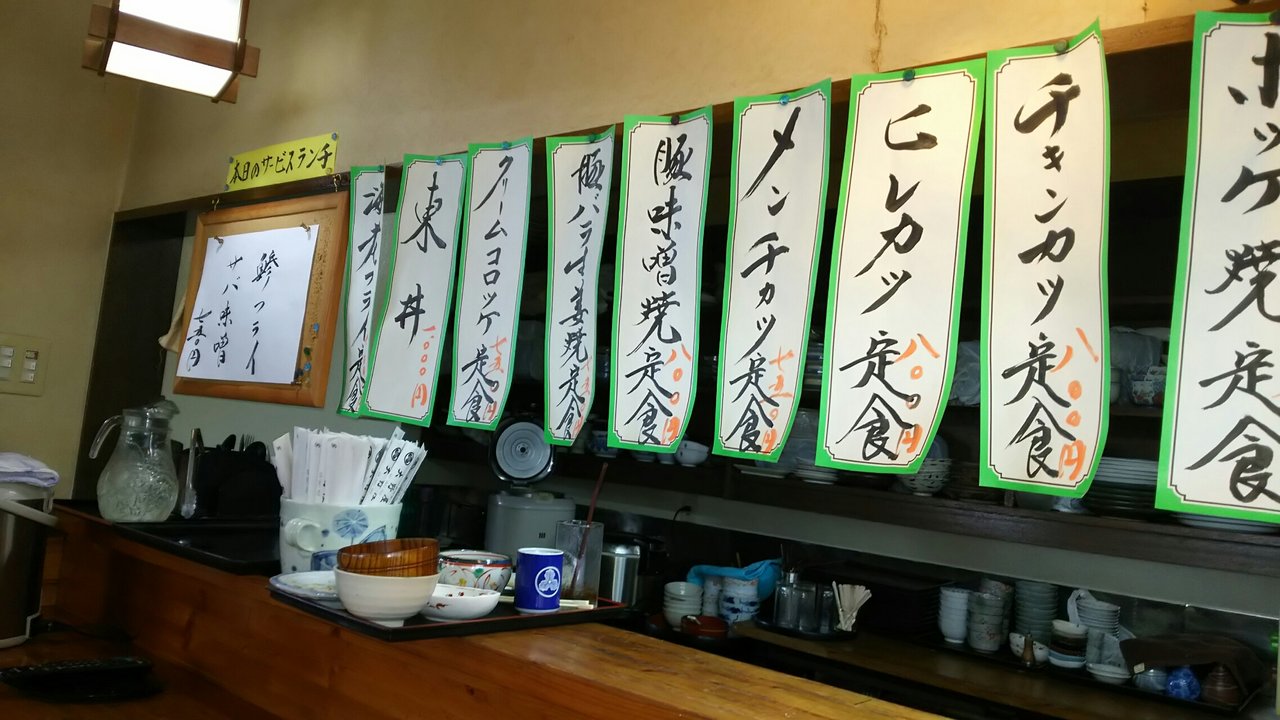 本日のサービスランチ
鯵フライ
サバ味噌
七五〇円
海老フライ定食
東丼
一〇〇〇円
クリームコロッケ定食
七五〇円
豚バラ生姜焼定食
七五〇円
豚味噌焼定食
八〇〇円
メンチカツ定食
七五〇円
ヒレカツ定食
八〇〇円
チキンカツ定食
八〇〇円
ホッケ焼定食